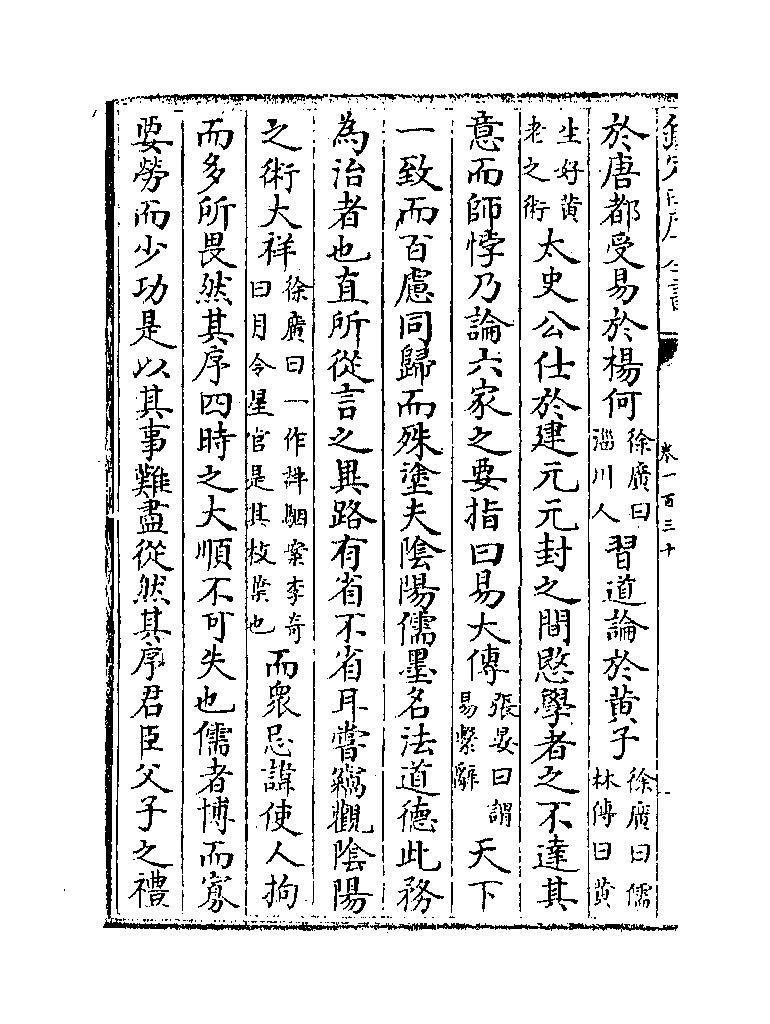 欽定四庫全書
卷一百三十
於唐都受易於楊何徐廣曰淄川人習道論於黄子徐廣曰儒林傳曰黄
生好黄老之術太史公仕於建元元封之間愍學者之不達其
意而師悖乃論六家之要指曰易大傳張晏曰謂易繫辭天下
一致而百慮同歸而殊塗夫陰陽儒墨名法道德此務
為治者也直所從言之異路有省不省耳嘗竊觀陰陽
之術大祥徐廣曰一作詳駰案李奇曰月令星官是其枝葉也而衆忌諱使人拘
而多所畏然其序四時之大順不可失也儒者博而寡
要勞而少功是以其事難盡從然其序君臣父子之禮